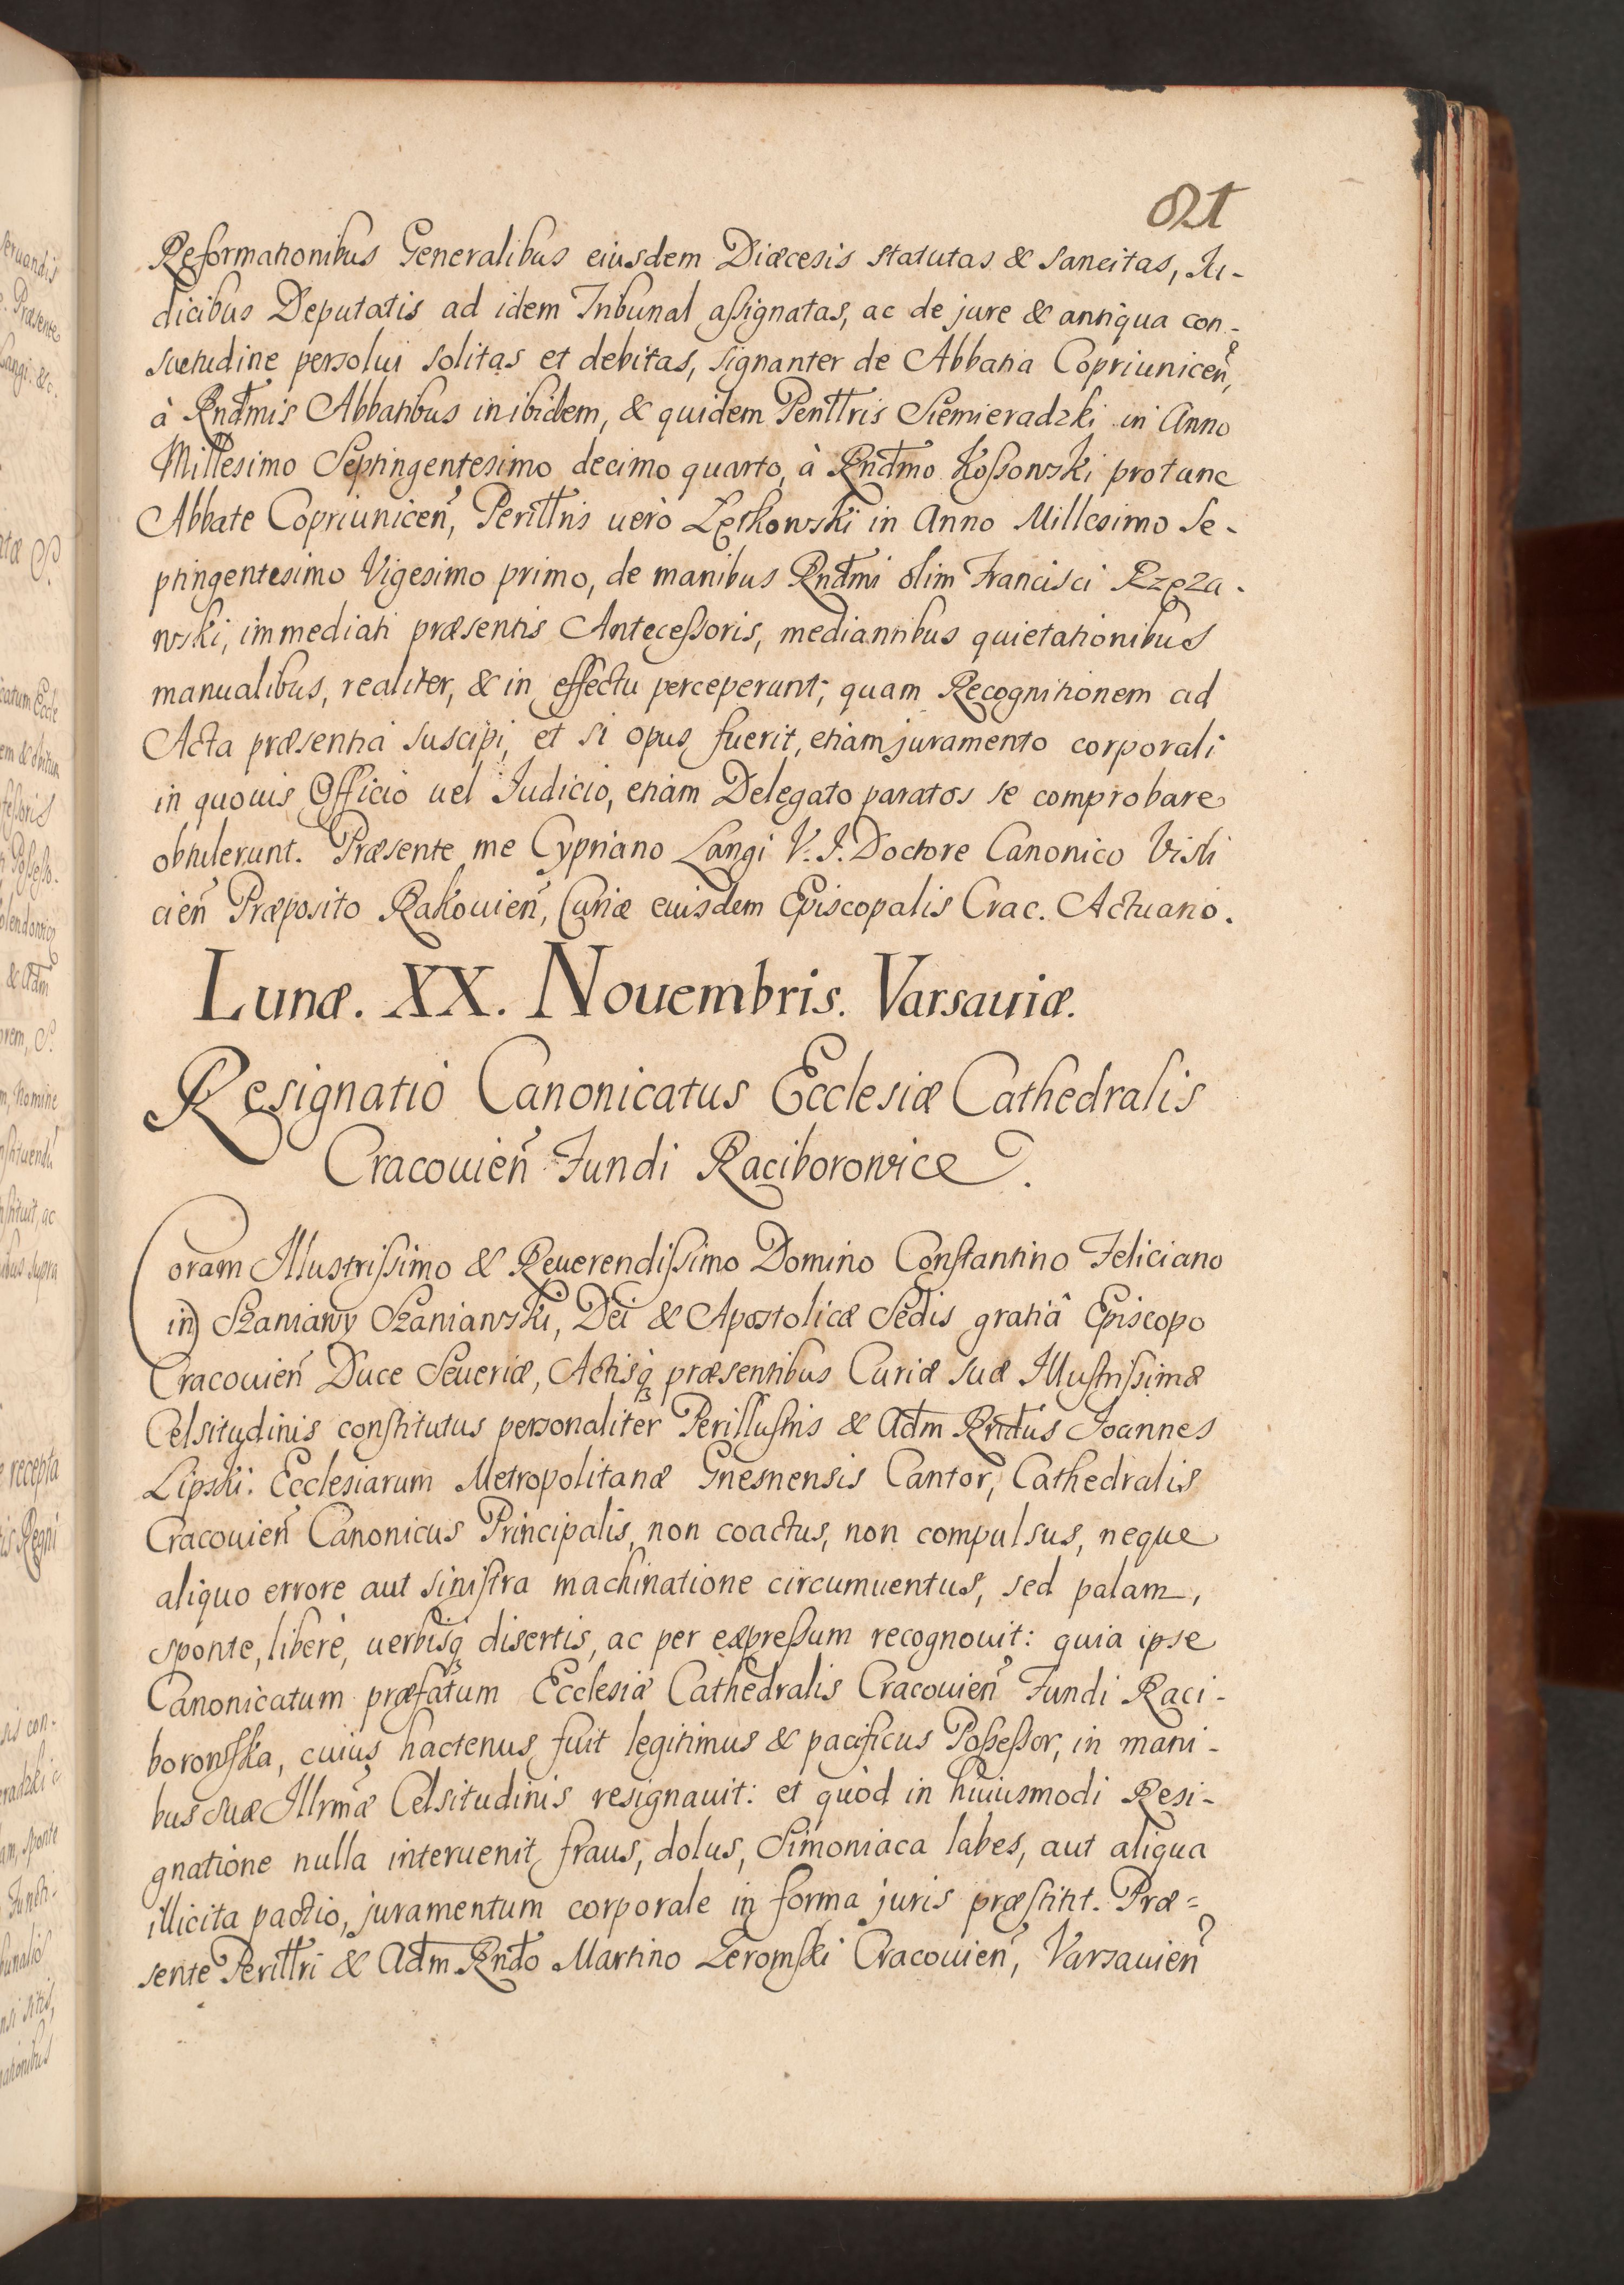 821
Reformationibus Generalibus eiusdem Diœcesis statutas & sancitas, Iu-
dicibus Deputatis ad idem Tribunal assignatas, ac de jure & antiqua con-
suetudine persolui solitas et debitas, signanter de Abbatia Copriunicen̄,
à Rndmis Abbatibus inibidem, & quidem Penttris Siemieradzki in Anno
Millesimo Septingentesimo decimo quarto, à Rndmo Kossowski protunc
Abbate Copriunicen̄, Perilltris uerò Zeskowski in Anno Millesimo Se-
ptingentesimo Vigesimo primo, de manibus Rndmi olim Francisci Rzęza-
wski, immediati præsentis Antecessoris, mediantibus quietationibus
manualibus, realiter, & in effectu perceperunt; quam Recognitionem ad
Acta præsentia suscipi, et si opus fuerit, etiam juramento corporali
in quouis Officio uel Iudicio, etiam Delegato paratos se comprobare
obtulerunt. Præsente me Cypriano Langi V. I. Doctore Canonico Visli
cien̄ Præposito Rakouien̄, Curiæ eiusdem Episcopalis Crac. Actuario.
Lunæ. XX. Nouembris. Varsauiæ.
Resignatio Canonicatus Ecclesiæ Cathedralis
Cracouien̄ Fundi Raciborowice.
Coram Illustrissimo & Reuerendissimo Domino Constantino Feliciano
in Szaniawy Szaniawski, Dei & Apostolicæ Sedis gratiâ Episcopo
Cracouien̄ Duce Seueriæ, Actisq́ præsentibus Curiæ suæ Illustrissimæ
Celsitudinis constitutus personaliter Perillustris & Adm Rndus Joannes
Lipski: Ecclesiarum Metropolitanæ Gnesnensis Cantor, Cathedralis
Cracouien̄ Canonicus Principalis, non coactus, non compulsus, neque
aliquo errore aut sinistra machinatione circumuentus, sed palam,
sponte, liberè, uerbisq́ disertis, ac per expressum recognouit: quia ipse
Canonicatum præfatum Ecclesiæ Cathedralis Cracouien̄ Fundi Raci-
borowska, cuius hactenus fuit legitimus & pacificus Possessor, in mani-
bus suæ Illrmæ Celsitudinis resignauit: et quòd in huiusmodi Resi-
gnatione nulla interuenit fraus, dolus, Simoniaca labes, aut aliqua
illicita pactio, juramentum corporale in forma juris præstitit. Præ=
sente Perilltri & Adm Rndo Martino Zeromski Cracouien̄, Varsauien̄